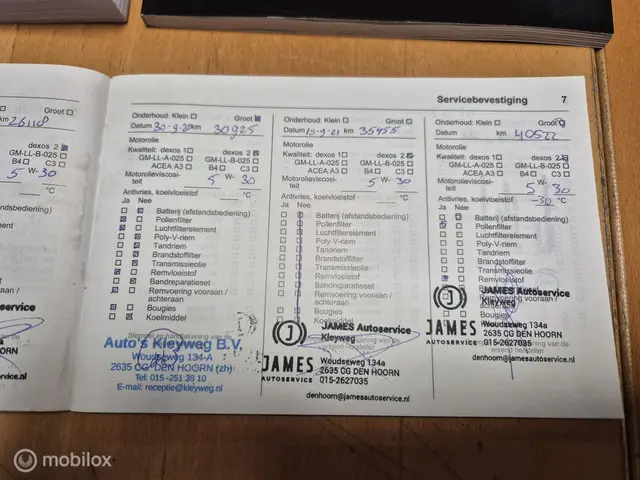 Servicebevestiging 7
km 26118
Groot
dexos 2
GM-LL-B-025
C3
5 W-30
°C
service
HOORN
Onderhoud: Klein Groot
Datum 30-9-20 km 30925
Motorolie
Kwaliteit: dexos 1 dexos 2
GM-LL-A-025 GM-LL-B-025
ACEA A3 B4 C3
Motorolieviscosi-
teit 5 W- 30
Antivries, koelvloeistof
°C
Ja Nee
Batterij (afstandsbediening)
Pollenfilter
Luchtfilterelement
Poly-V-riem
Tandriem
Brandstoffilter
Transmissieolie
Remvloeistof
Bandreparatieset
Remvoering vooraan /
achteraan
Bougies
Koelmiddel
Auto's Kleyweg B.V.
Woudseweg 134-A
2635 CG DEN HOORN (zh)
Tel: 015-251 38 10
E-mail: receptie@kleyweg.nl
Onderhoud: Klein Groot
Datum 15-9-21 km 35455
Motorolie
Kwaliteit: dexos 1 dexos 2
GM-LL-A-025 GM-LL-B-025
ACEA A3 B4 C3
Motorolieviscosi-
teit 5 W- 30
Antivries, koelvloeistof
°C
Ja Nee
Batterij (afstandsbediening)
Pollenfilter
Luchtfilterelement
Poly-V-riem
Tandriem
Brandstoffilter
Transmissieolie
Remvloeistof
Bandreparatieset
Remvoering vooraan /
achteraan
Bougies
Koelmiddel
JAMES Autoservice
Kleyweg
JAMES
AUTOSERVICE
Woudseweg 134a
2635 CG DEN HOORN
015-2627035
denhoorn@jamesautoservice.nl
Onderhoud: Klein Groot
Datum km 40522
Motorolie
Kwaliteit: dexos 1 dexos 2
GM-LL-A-025 GM-LL-B-025
ACEA A3 B4 C3
Motorolieviscosi-
teit 5 W 30
Antivries, koelvloeistof
-30 °C
Ja Nee
Batterij (afstandsbediening)
Pollenfilter
Luchtfilterelement
Poly-V-riem
Tandriem
Brandstoffilter
Transmissieolie
Remvloeistof
Remvoering vooraan /
achteraan
Bougies
JAMES Autoservice
Kleyweg
JAMES
AUTOSERVICE
Woudseweg 134a
2635 CG DEN HOORN
015-2627035
denhoorn@jamesautoservice.nl
mobilox